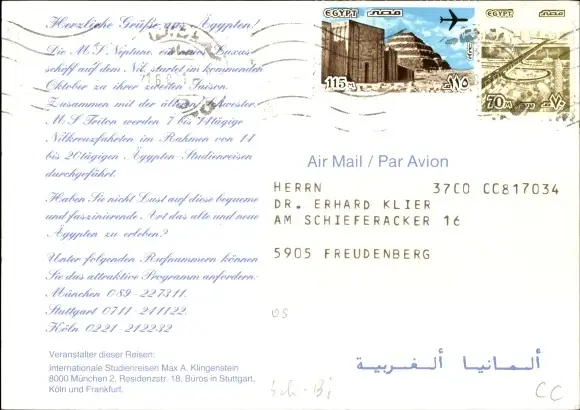 Herzliche Grüße aus Ägypten!
Die M.S. Neptune, ein neues Luxus-
schiff auf dem Nil, startet im kommenden
Oktober zu ihrer zweiten Saison.
Zusammen mit der älteren Schwester
M.S. Triton werden 7 bis 14tägige
Nilkreuzfahrten im Rahmen von 14
bis 20tägigen Ägypten-Studienreisen
durchgeführt.
Haben Sie nicht Lust auf diese bequeme
und faszinierende Art das alte und neue
Ägypten zu erleben?
Unter folgenden Rufnummern können
Sie das attraktive Programm anfordern:
München 089-227311.
Stuttgart 0711-241122.
Köln 0221-212232
Veranstalter dieser Reisen:
Internationale Studienreisen Max A. Klingenstein
8000 München 2, Residenzstr. 18, Büros in Stuttgart,
Köln und Frankfurt.
EGYPT مصر
115 M ١١٥
EGYPT مصر
70 M ٧٠
Air Mail / Par Avion
HERRN 37C0 CC817034
DR. ERHARD KLIER
AM SCHIEFERACKER 16
5905 FREUDENBERG
ألمانيا ألغربية
CC